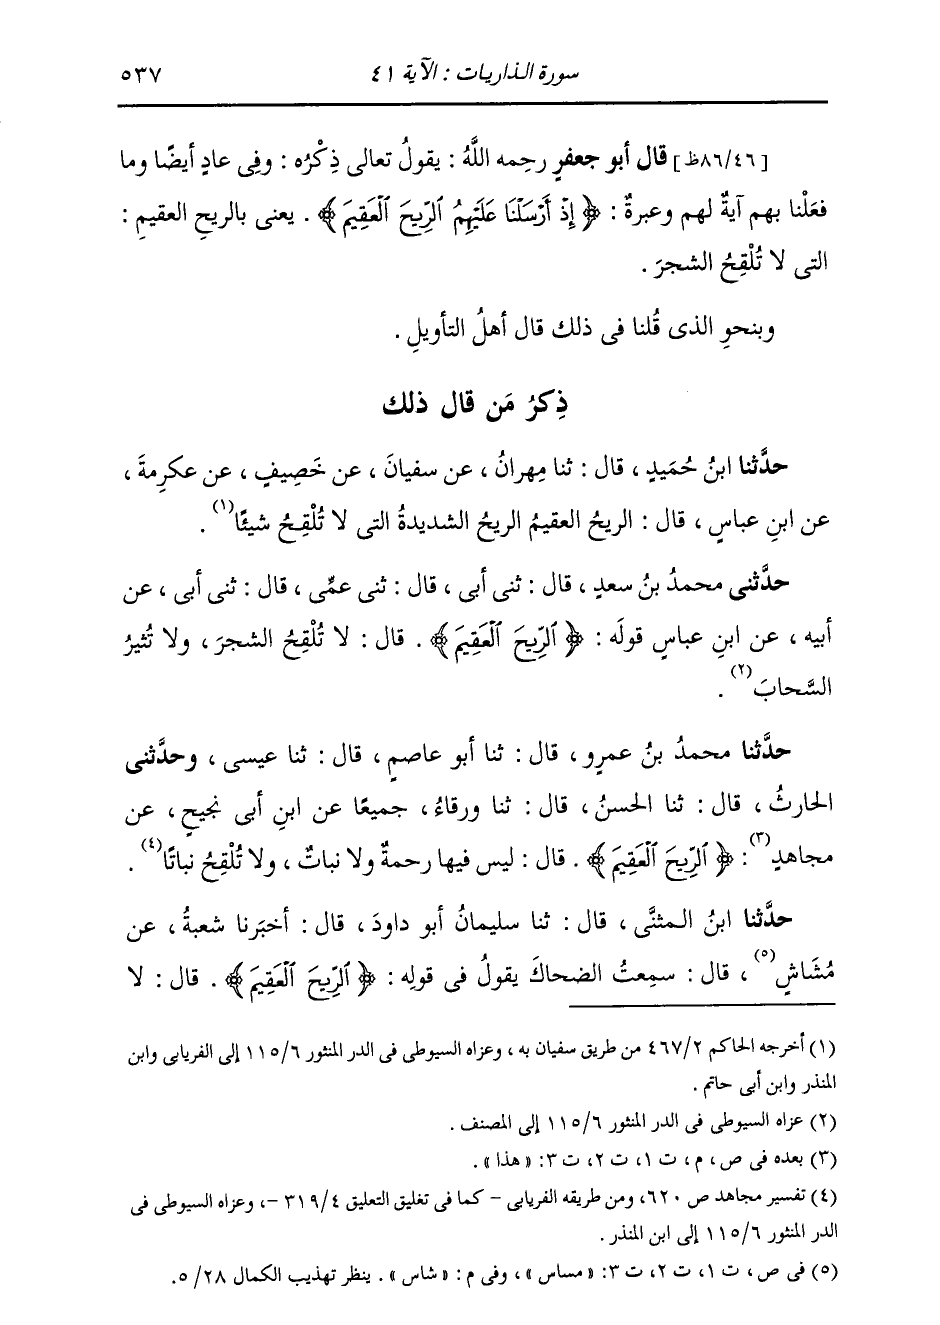 سورة الذاريات : الآية ٤١ ٥٣٧
[٨٦/٤٦ظ] قال أبو جعفرٍ رحِمه اللَّهُ : يقولُ تعالى ذِكْرُه : وفى عادٍ أيضًا وما
فعَلْنا بهم آيةٌ لهم وعبرةٌ : ﴿ إِذْ أَرْسَلْنَا عَلَيْهِمُ ٱلرِّيحَ ٱلْعَقِيمَ ﴾ . يعنى بالريحِ العقيمِ :
التى لا تُلْقِحُ الشجرَ .
وبنحوِ الذى قُلنا فى ذلك قال أهلُ التأويلِ .
ذِكرُ مَن قال ذلك
حدَّثنا ابنُ حُمَيدٍ ، قال : ثنا مِهرانُ ، عن سفيانَ ، عن خَصِيفٍ ، عن عكرِمةَ ،
عن ابنِ عباسٍ ، قال : الريحُ العقيمُ الريحُ الشديدةُ التى لا تُلْقِحُ شيئًا(١) .
حدَّثنى محمدُ بنُ سعدٍ ، قال : ثنى أبى ، قال : ثنى عمِّى ، قال : ثنى أبى ، عن
أبيه ، عن ابنِ عباسٍ قولَه : ﴿ ٱلرِّيحَ ٱلْعَقِيمَ ﴾ . قال : لا تُلْقِحُ الشجرَ ، ولا تُثيرُ
السَّحابَ(٢) .
حدَّثنا محمدُ بنُ عمرٍو ، قال : ثنا أبو عاصمٍ ، قال : ثنا عيسى ، وحدَّثنى
الحارثُ ، قال : ثنا الحسنُ ، قال : ثنا ورقاءُ ، جميعًا عن ابنِ أبى نجيحٍ ، عن
مجاهدٍ(٣) : ﴿ ٱلرِّيحَ ٱلْعَقِيمَ ﴾ . قال : ليس فيها رحمةٌ ولا نباتٌ ، ولا تُلْقِحُ نباتًا(٤) .
حدَّثنا ابنُ المثنَّى ، قال : ثنا سليمانُ أبو داودَ ، قال : أخبَرنا شعبةُ ، عن
مُشَاشٍ(٥) ، قال : سمِعتُ الضحاكَ يقولُ فى قولِه : ﴿ ٱلرِّيحَ ٱلْعَقِيمَ ﴾ . قال : لا
(١) أخرجه الحاكم ٤٦٧/٢ من طريق سفيان به ، وعزاه السيوطى فى الدر المنثور ١١٥/٦ إلى الفريابى وابن
المنذر وابن أبى حاتم .
(٢) عزاه السيوطى فى الدر المنثور ١١٥/٦ إلى المصنف .
(٣) بعده فى ص ، م ، ت ١، ت ٢، ت ٣: « هذا » .
(٤) تفسير مجاهد ص ٦٢٠، ومن طريقه الفريابى - كما فى تغليق التعليق ٣١٩/٤ -، وعزاه السيوطى فى
الدر المنثور ١١٥/٦ إلى ابن المنذر .
(٥) فى ص ، ت ١، ت ٢، ت ٣: « مساس » ، وفى م : « شاس » . ينظر تهذيب الكمال ٥/٢٨.